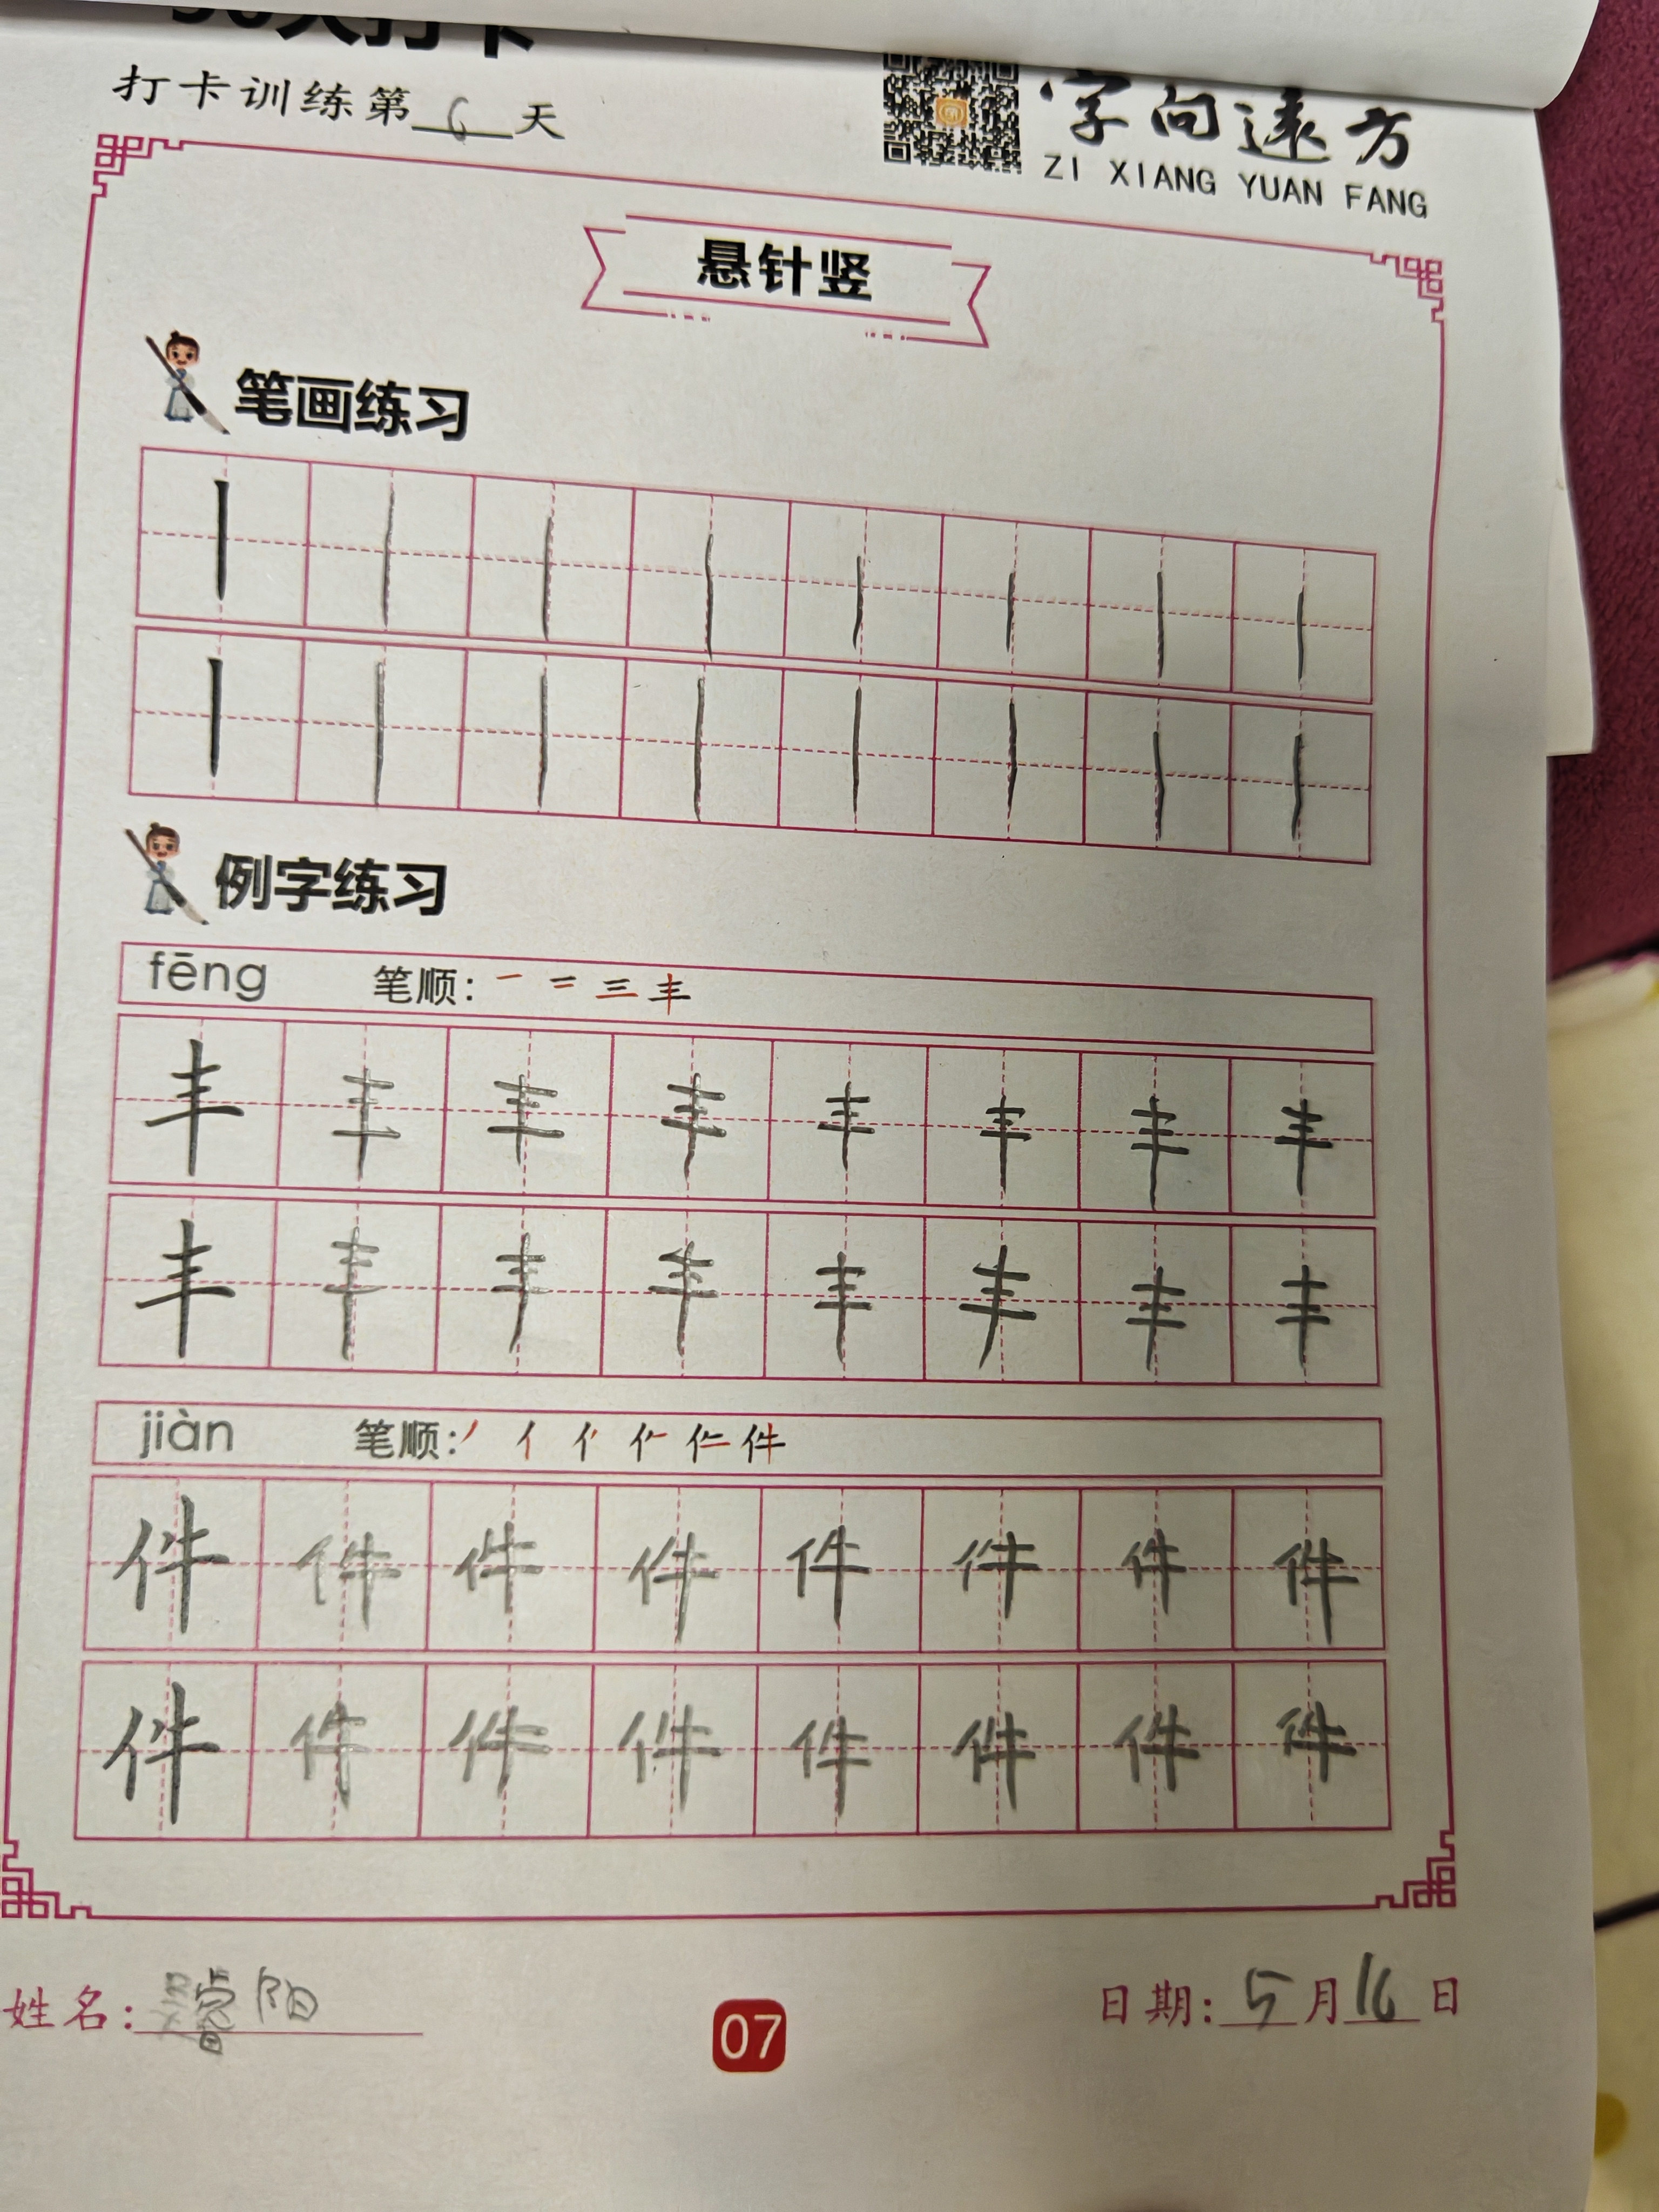 打卡训练第6天
字向远方
ZI XIANG YUAN FANG
悬针竖
笔画练习
例字练习
fēng 笔顺: 一 二 三 丰
丰 丰 丰 丰 丰 丰 丰 丰
丰 丰 丰 丰 丰 丰 丰 丰
jiàn 笔顺: 丿 亻 件
件 件 件 件 件 件 件 件
件 件 件 件 件 件 件 件
姓名: 阳
07
日期: 5月16日